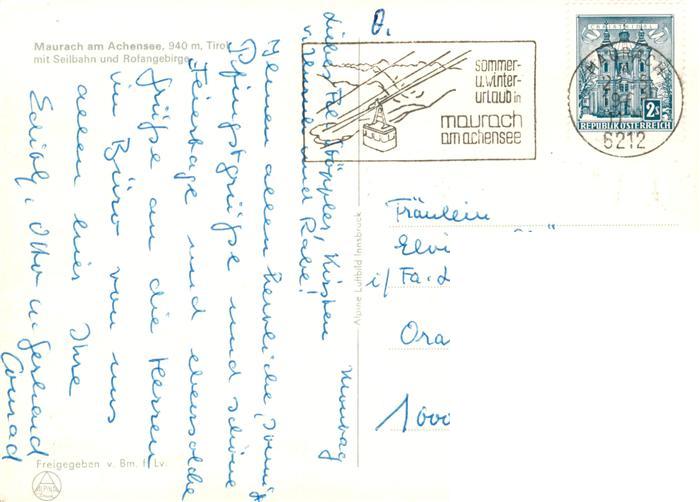 Maurach am Achensee, 940 m, Tirol
mit Seilbahn und Rofangebirge
Montag
Liebes Frl. Köppler, Kirsten
und Rabe!
Ihnen allen herzliche, sonnige
Pfingstgrüße und schöne
Feiertage und ebensolche
Grüße an die Herren
im Büro von uns
allen hier Ihre
Otto u. Gerhard
Conrad
Freigegeben v. Bm. f. Lv.
ALPINE
Alpine Luftbild Innsbruck
sommer-
u. winter-
urlaub in
maurach
am achensee
MAURACH
6212
CHRISTKINDL
2 S
REPUBLIK ÖSTERREICH
Ö.
Fräulein
Elvi
i/ Fa.
Ora
1000